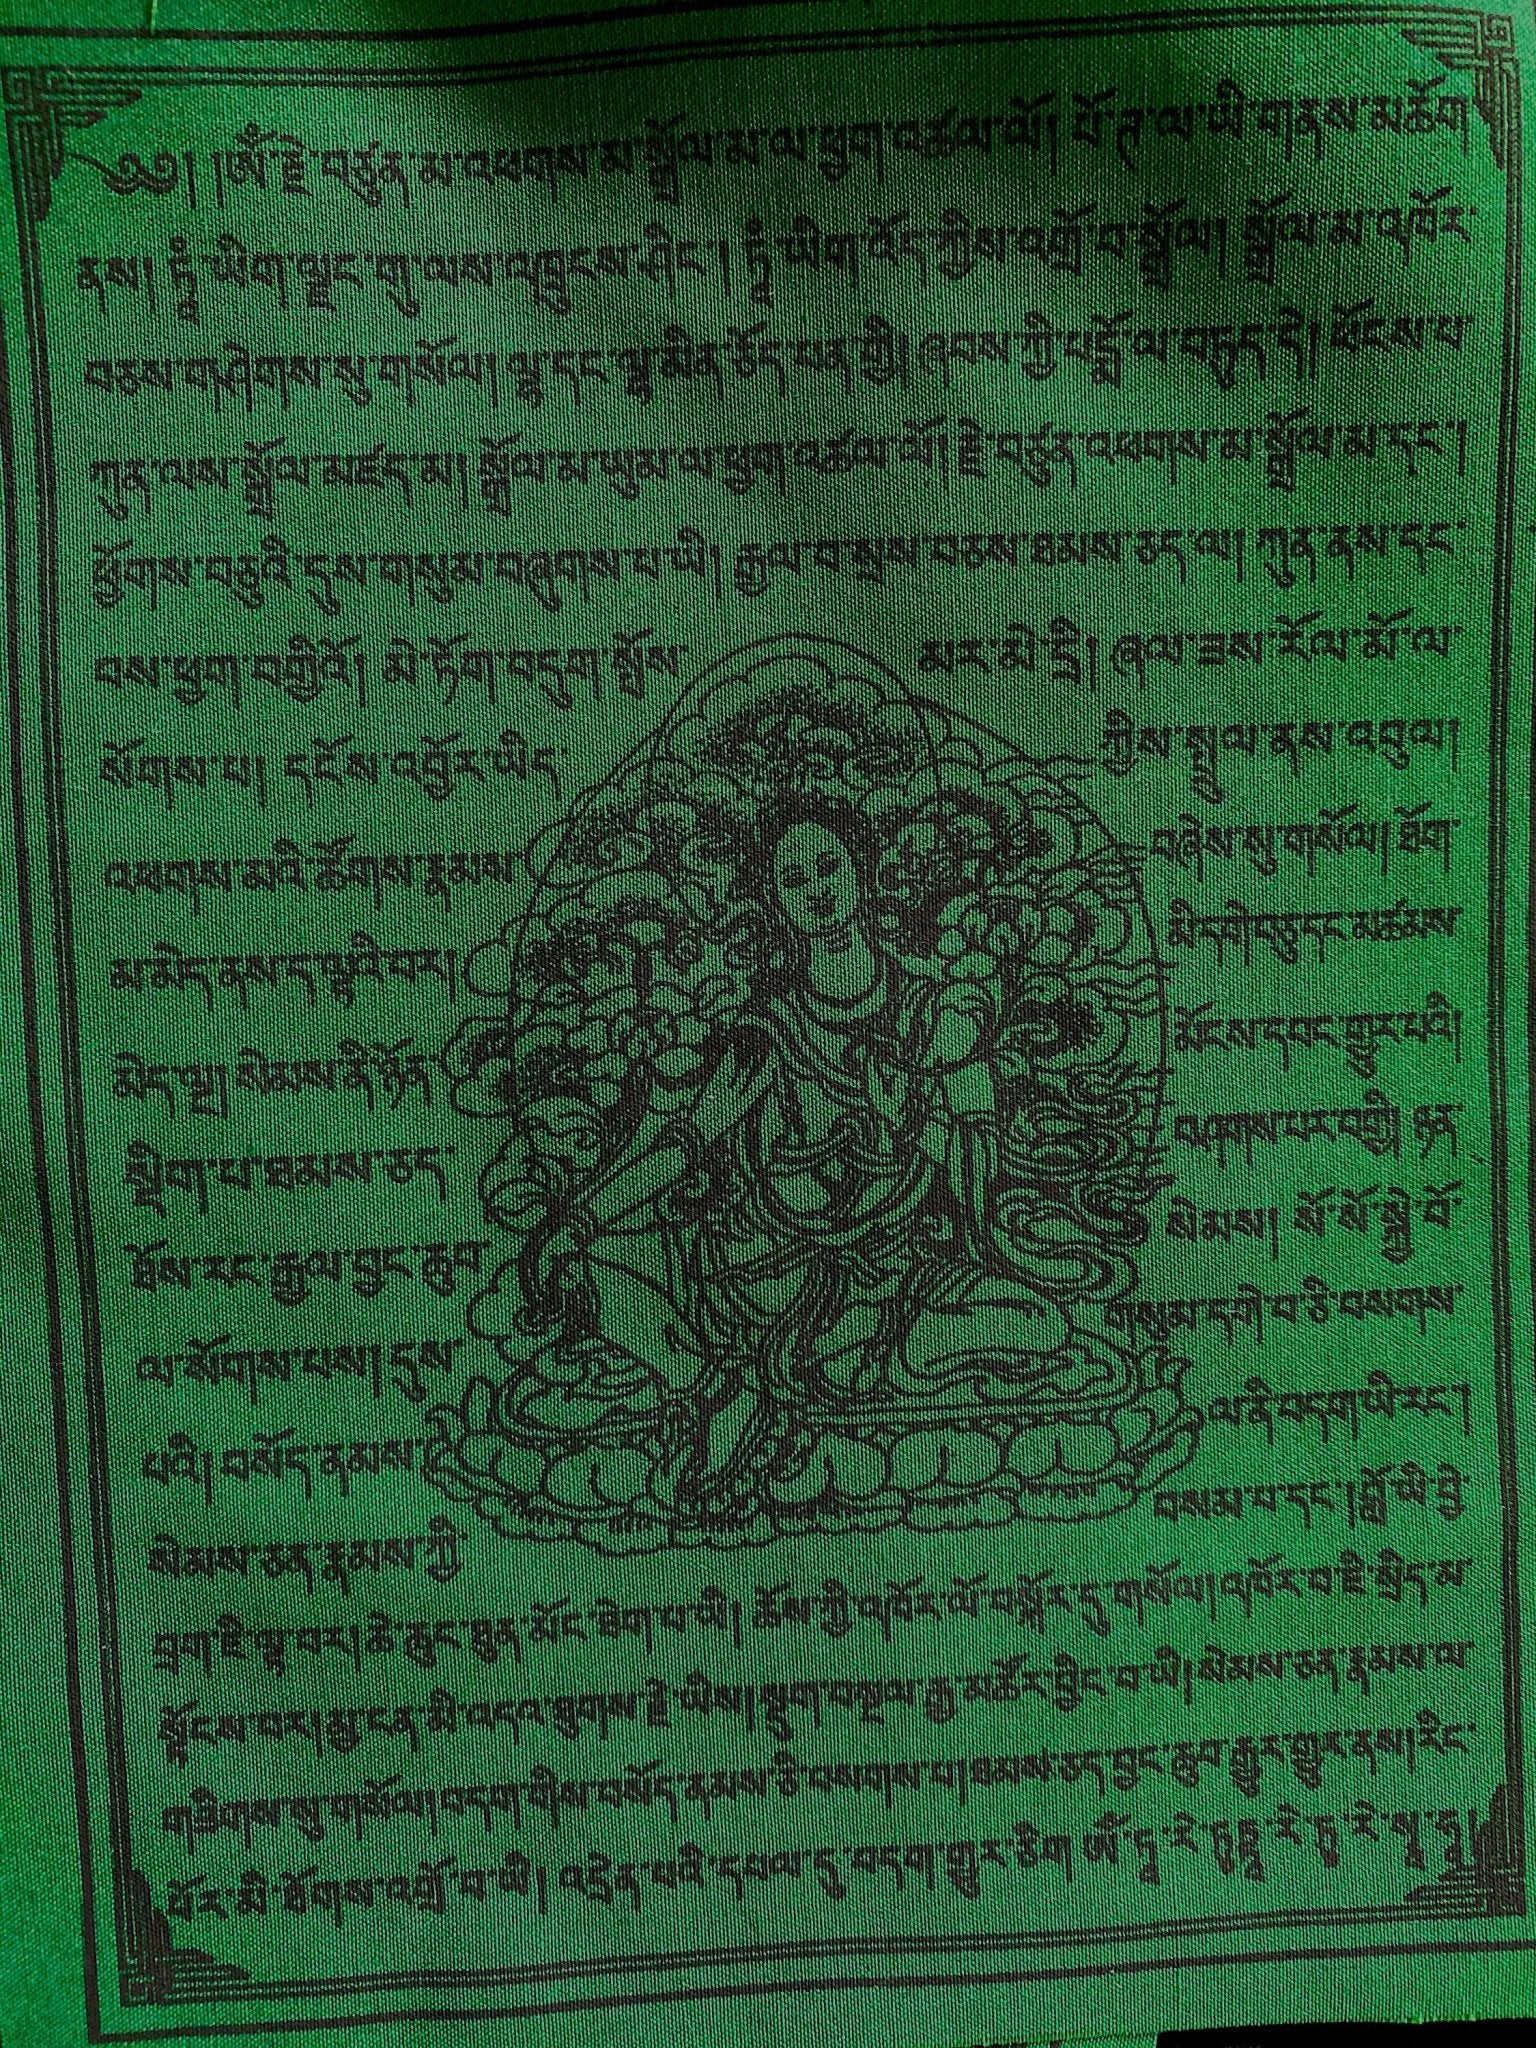 ༄༅། །ༀ་རྗེ་བཙུན་མ་འཕགས་མ་སྒྲོལ་མ་ལ་ཕྱག་འཚལ་ལོ། པོ་ཏ་ལ་ཡི་གནས་མཆོག་
ནས། ཏཱཾ་ཡིག་ལྗང་གུ་ལས་འཁྲུངས་ཤིང་། ཏཱཾ་ཡིག་འོད་ཀྱིས་འགྲོ་བ་སྒྲོལ། སྒྲོལ་མ་འཁོར་
བཅས་གཤེགས་སུ་གསོལ། ལྷ་དང་ལྷ་མིན་ཅོད་པན་གྱི། ཞབས་ཀྱི་པདྨོ་ལ་བཏུད་དེ། ཕོངས་པ་
ཀུན་ལས་སྒྲོལ་མཛད་མ། སྒྲོལ་མ་ཡུམ་ལ་ཕྱག་འཚལ་ལོ། རྗེ་བཙུན་འཕགས་མ་སྒྲོལ་མ་དང་།
ཕྱོགས་བཅུའི་དུས་གསུམ་བཞུགས་པ་ཡི། རྒྱལ་བ་སྲས་བཅས་ཐམས་ཅད་ལ། ཀུན་ནས་དང་
བས་ཕྱག་བགྱིའོ། མེ་ཏོག་བདུག་སྤོས་ མར་མེ་དྲི། ཞལ་ཟས་རོལ་མོ་ལ་
སོགས་པ། དངོས་འབྱོར་ཡིད་ ཀྱིས་སྤྲུལ་ནས་འབུལ།
འཕགས་མའི་ཚོགས་རྣམས་ བཞེས་སུ་གསོལ། ཐོག་
མ་མེད་ནས་ད་ལྟའི་བར། མི་དགེ་བཅུ་དང་མཚམས་
མེད་ལྔ། སེམས་ནི་ཉོན་ མོངས་དབང་གྱུར་པའི།
སྡིག་པ་ཐམས་ཅད་ བཤགས་པར་བགྱི། ཉན་
ཐོས་རང་རྒྱལ་བྱང་ཆུབ་ སེམས། སོ་སོ་སྐྱེ་བོ་
ལ་སོགས་པས། དུས་ གསུམ་དགེ་བ་ཅི་བསགས་
པའི། བསོད་ནམས་ ལ་ནི་བདག་ཡི་རང་།
སེམས་ཅན་རྣམས་ཀྱི་ བསམ་པ་དང་། བློ་ཡི་བྱེ་
བྲག་ཇི་ལྟ་བར། ཆེ་ཆུང་ཐུན་མོང་ཐེག་པ་ཡི། ཆོས་ཀྱི་འཁོར་ལོ་བསྐོར་དུ་གསོལ། འཁོར་བ་ཇི་སྲིད་མ་
སྟོངས་བར། མྱ་ངན་མི་འདའ་ཐུགས་རྗེ་ཡིས། སྡུག་བསྔལ་རྒྱ་མཚོར་བྱིང་བ་ཡི། སེམས་ཅན་རྣམས་ལ་
གཟིགས་སུ་གསོལ། བདག་གིས་བསོད་ནམས་ཅི་བསགས་པ། ཐམས་ཅད་བྱང་ཆུབ་རྒྱུར་གྱུར་ནས། རིང་
པོར་མི་ཐོགས་འགྲོ་བ་ཡི། འདྲེན་པའི་དཔལ་དུ་བདག་གྱུར་ཅིག ༀ་ཏཱ་རེ་ཏུཏྟཱ་རེ་ཏུ་རེ་སྭཱ་ཧཱ།